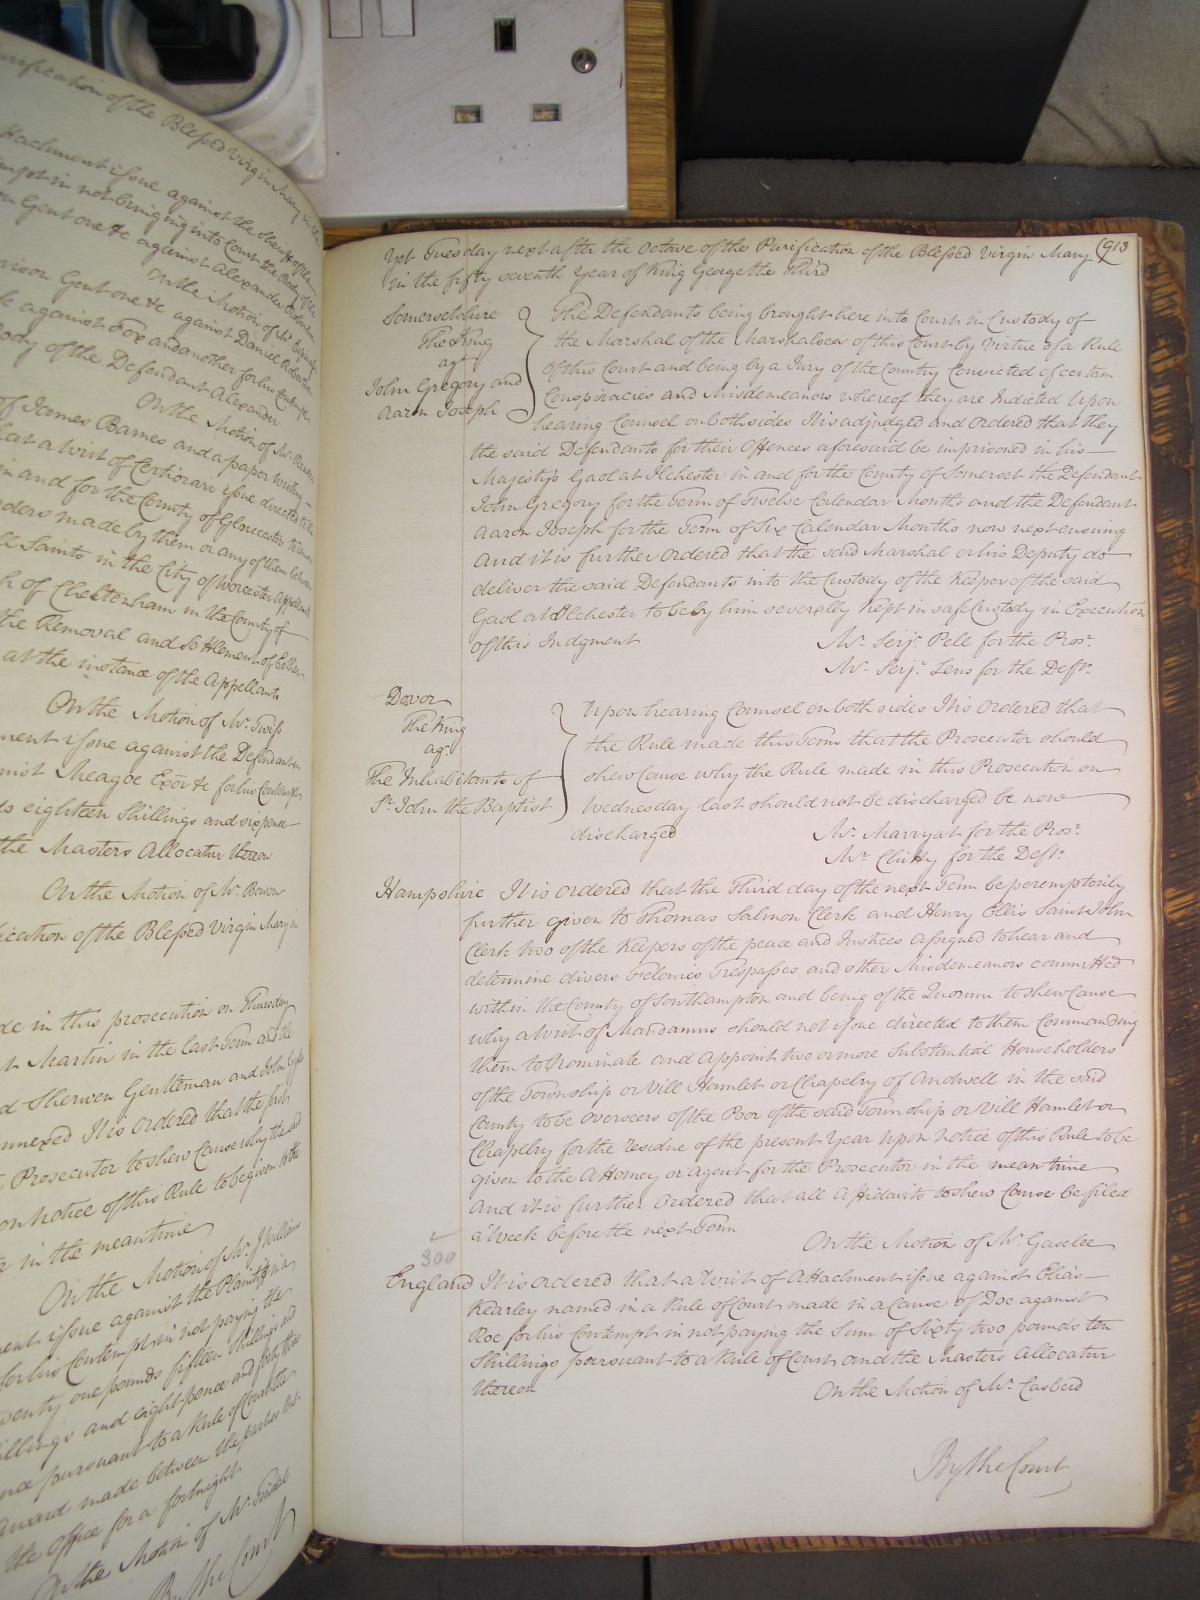 urification of the Blessed Virgin Mary in the
ttachment issue against the Sheriff of
empt in not bringing into Court the Body of the
on Gent one &c against Alexander Robertson
On the Motion of Mr. Espinasse
rison Gent one &c against Daniel Robertson
against Fox and another for his Contempt
ody of the Defendant Alexander
On the Motion of Mr.
of James Barnes and a paper writing
hat a Writ of Certiorari issue directed to the
in and for the County of Gloucester to remove
rders made by them or any of them between
ll Saints in the City of Worcester Appellants
h of Cheltenham in the County of
the Removal and Settlement of Esther
at the instance of the Appellants
On the Motion of Mr. Twiss
ment issue against the Defendant in
inst Meagoe Exor &c for his Contempt
ds eighteen Shillings and sixpence
the Masters Allocatur thereon
On the Motion of Mr. Bowen
ication of the Blessed Virgin Mary in
de in this prosecution on Thursday
t Martin in the last Term and the
d Sherwen Gentleman and John
nnexed It is ordered that the first
Prosecutor to shew Cause why the said
on Notice of this Rule to be given to the
r in the meantime
On the Motion of Mr. J. Williams
ment issue against the Plaintiff in a
for his Contempt in not paying the
wenty one pounds fifteen Shillings and
illings and eight pence and forty three
nce pursuant to a Rule of Court the
Award made between the parties
the Office for a fortnight
On the Motion of Mr. Tindal
By the Court
Yet Tuesday next after the Octave of the Purification of the Blessed Virgin Mary (913
in the fifty seventh Year of King George the Third
Somersetshire
The King
agt.
John Gregory and
Aaron Joseph
The Defendants being brought here into Court in Custody of
the Marshal of the Marshalsea of this Court by Virtue of a Rule
of this Court and being by a Jury of the Country Convicted of certain
Conspiracies and Misdemeanors whereof they are Indicted Upon
hearing Counsel on both sides It is adjudged and ordered that they
the said Defendants for their Offences aforesaid be imprisoned in his
Majesty's Gaol at Ilchester in and for the County of Somerset the Defendant
John Gregory for the Term of Twelve Calendar Months and the Defendant
Aaron Joseph for the Term of Six Calendar Months now next ensuing
And it is further ordered that the said Marshal or his Deputy do
deliver the said Defendants into the Custody of the Keeper of the said
Gaol at Ilchester to be by him severally kept in safe Custody in Execution
of this Judgment
Mr. Serjt. Pell for the Prosr.
Mr. Serjt. Lens for the Defts.
Devon
The King
agt.
The Inhabitants of
St. John the Baptist
Upon hearing Counsel on both sides It is ordered that
the Rule made this Term that the Prosecutor should
shew Cause why the Rule made in this Prosecution on
Wednesday last should not be discharged be now
discharged
Mr. Marryat for the Prosr.
Mr. Chitty for the Defts.
Hampshire It is ordered that the Third day of the next Term be peremptorily
further given to Thomas Salmon Clerk and Henry Ellis Saint John
Clerk two of the Keepers of the peace and Justices assigned to hear and
determine divers Felonies Trespasses and other Misdemeanors committed
within the County of Southampton and being of the Quorum to shew Cause
why a Writ of Mandamus should not issue directed to them Commanding
them to Nominate and Appoint two or more Substantial Householders
of the Township or Vill Hamlet or Chapelry of Andwell in the said
County to be Overseers of the Poor of the said Township or Vill Hamlet or
Chapelry for the residue of the present Year upon notice of this Rule to be
given to the Attorney or agent for the Prosecutor in the meantime
And it is further Ordered that all Affidavits to shew Cause be filed
a Week before the next Term
On the Motion of Mr. Gaselee
300
England It is ordered that a Writ of Attachment issue against Elias
Kearley named in a Rule of Court made in a Cause of Doe against
Roe for his Contempt in not paying the Sum of Sixty two pounds ten
Shillings pursuant to a Rule of Court and the Masters Allocatur
thereon
On the Motion of Mr. Casberd
By the Court